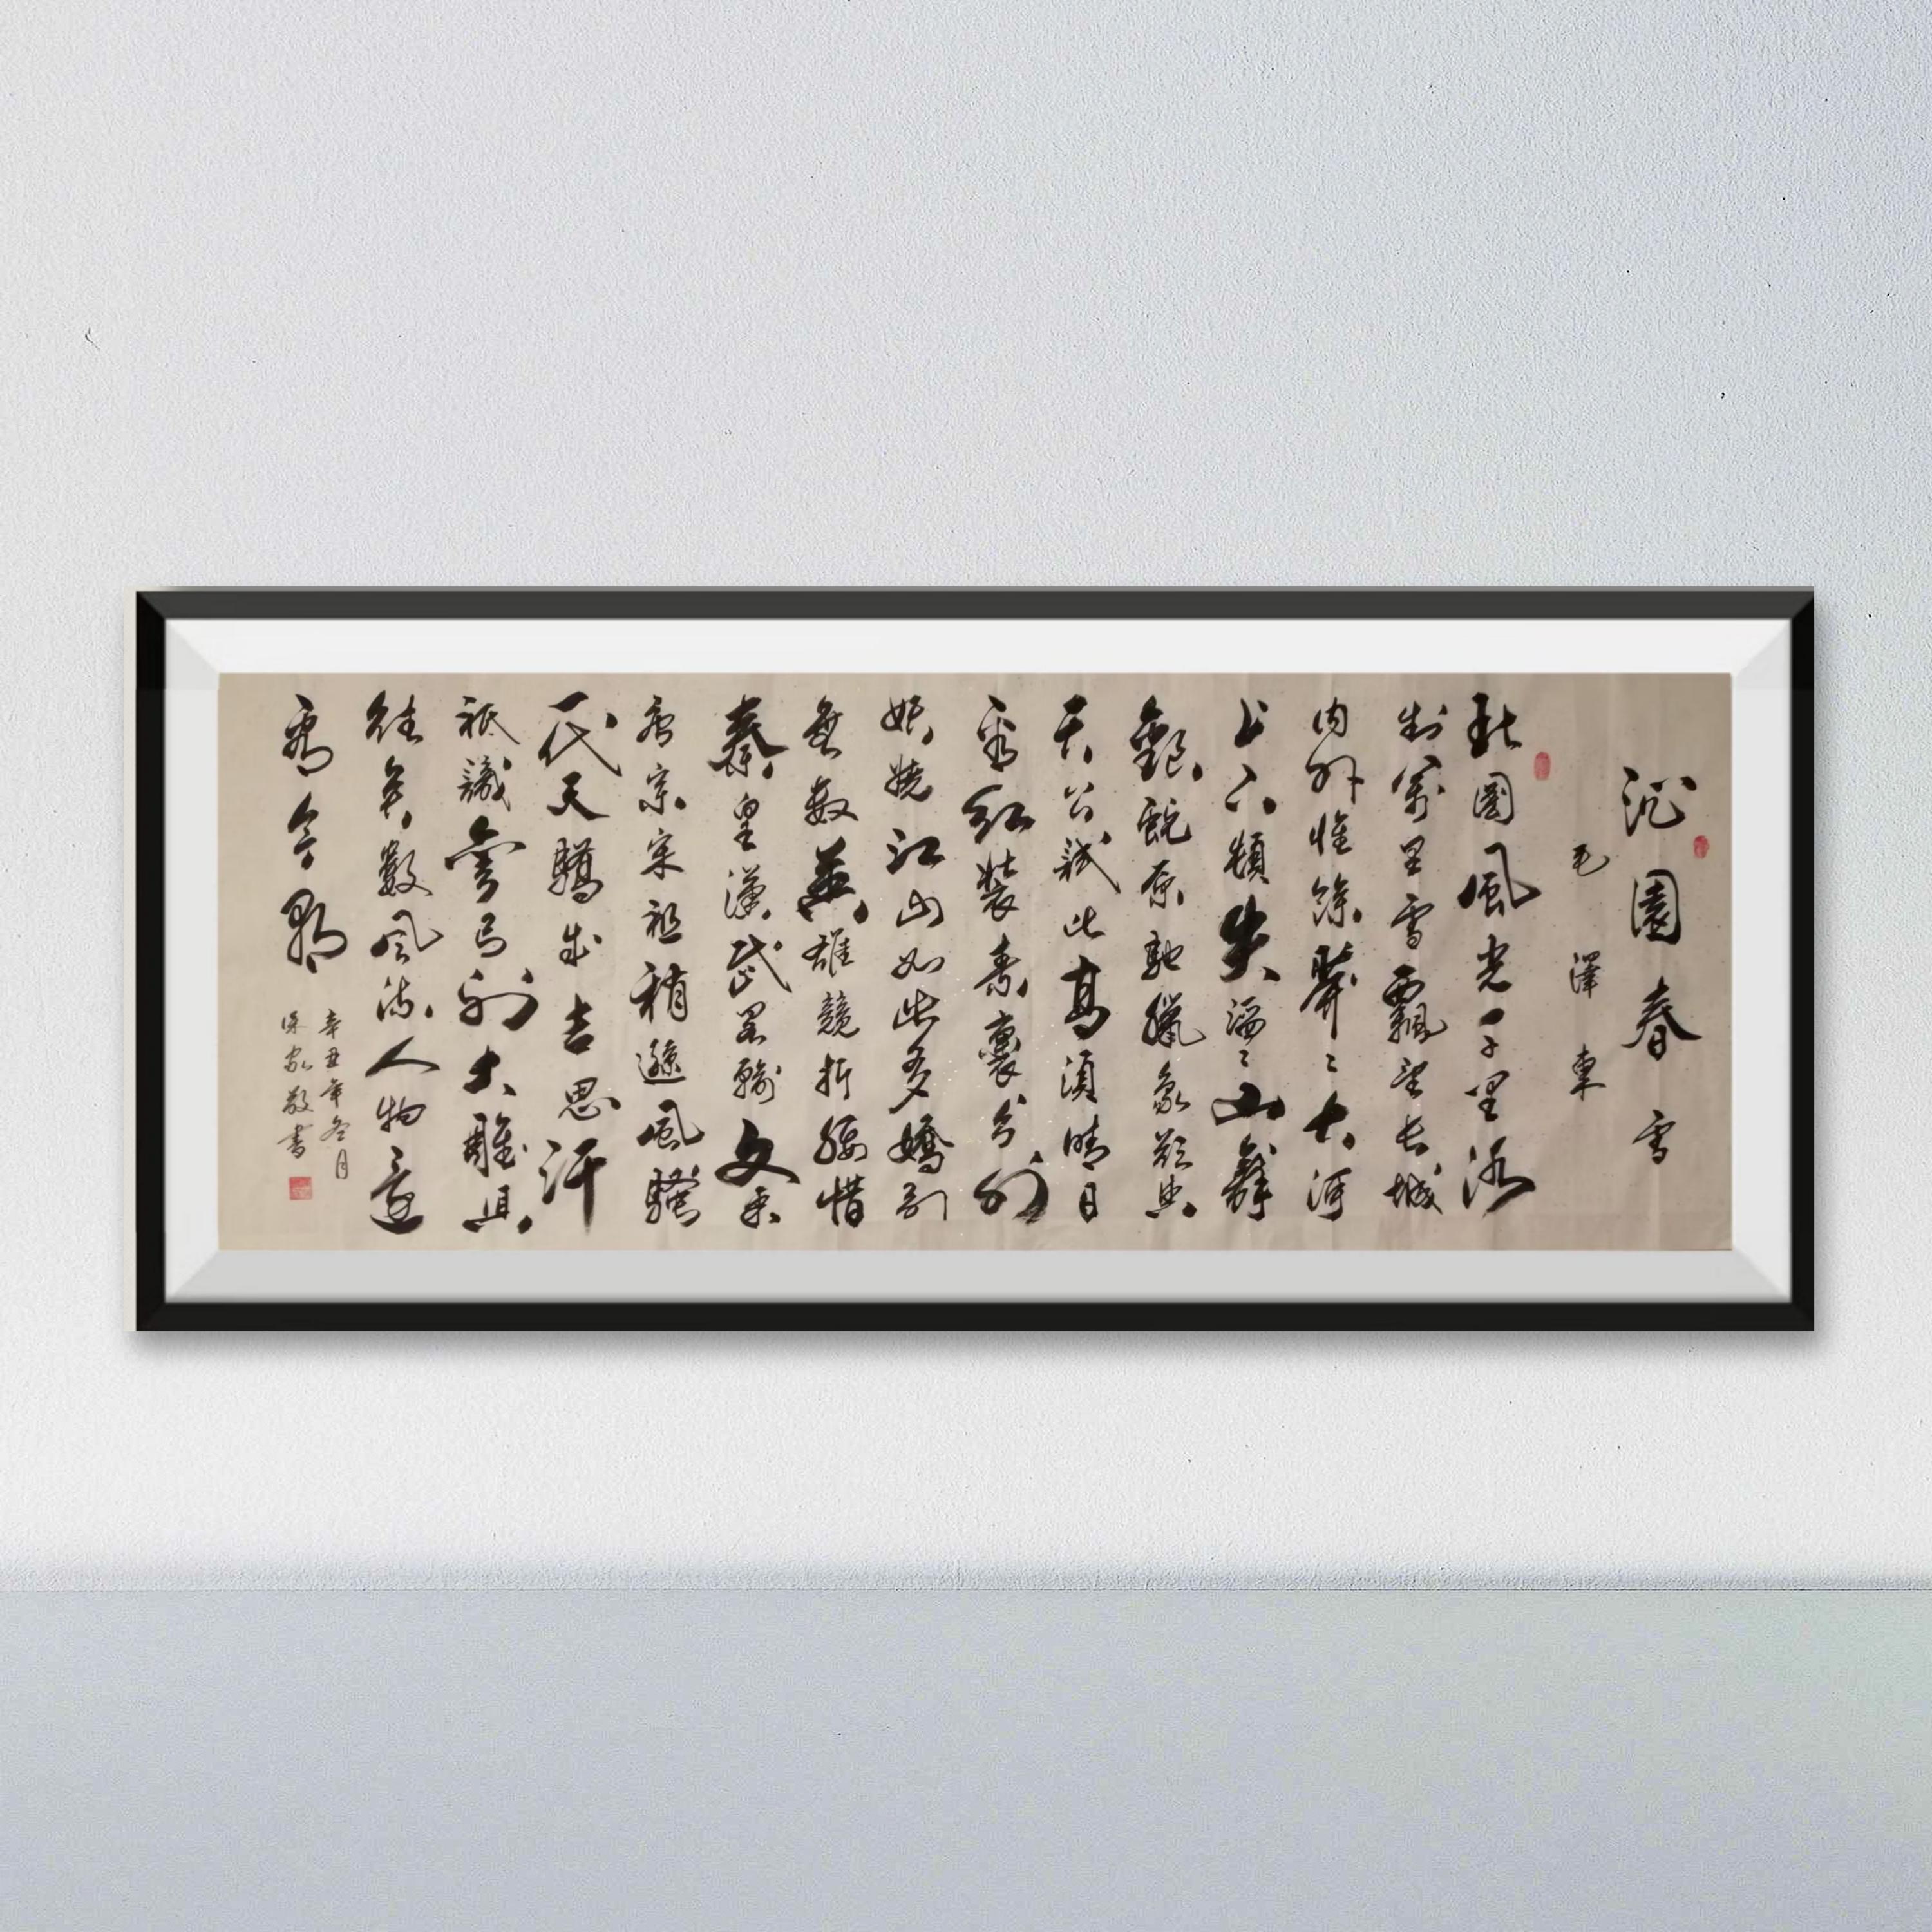 沁園春 雪
毛澤東
北國風光千里冰
封萬里雪飄望長城
内外惟餘莽〻大河
上下頓失滔〻山舞
銀蛇原馳蠟象欲與
天公試比高須晴日
看紅裝素裹分外
妖嬈江山如此多嬌引
無數英雄競折腰惜
秦皇漢武畧輸文采
唐宗宋祖稍遜風騷
一代天驕成吉思汗
祇識彎弓射大雕俱
往矣數風流人物還
看今朝
辛丑年冬月
保家敬書